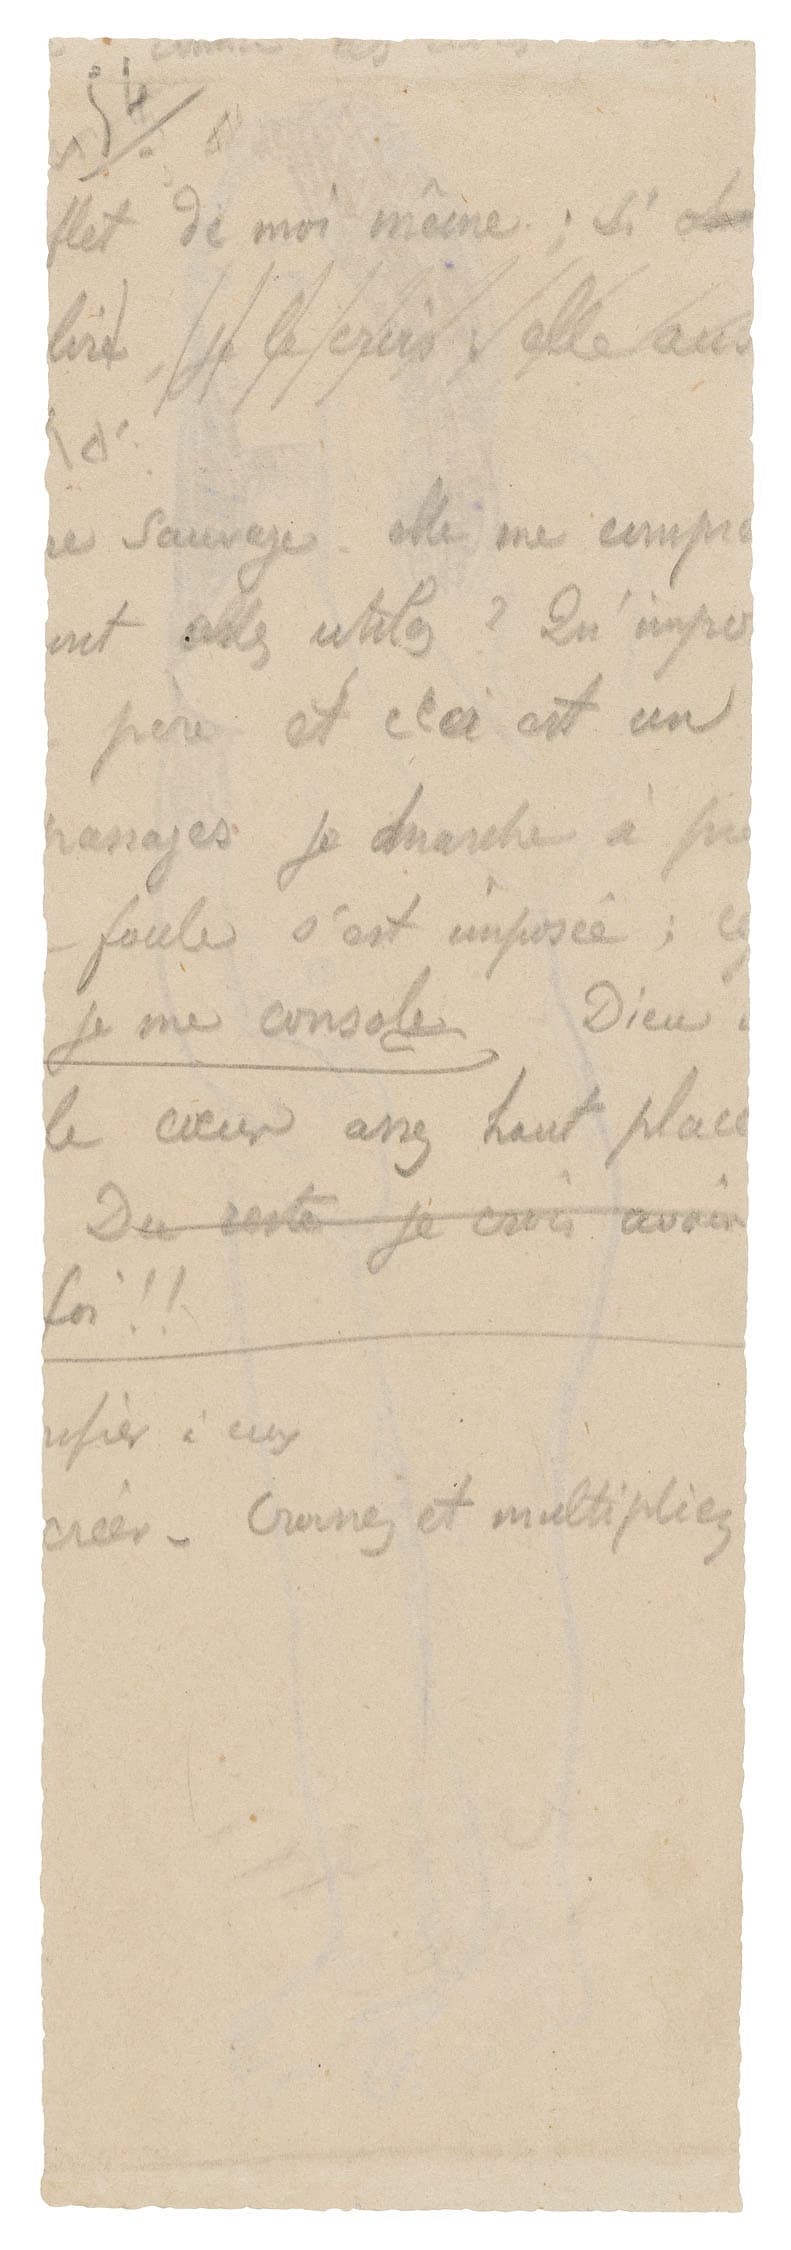 flet de moi même ; si
lire, je le crois ; elle aus
re sauvage. elle me compre
ont elles utiles ? Qu'impor
père et ceci est un
passages je marche à pre
foule s'est imposée ;
je me console Dieu
le cœur assez haut placé
Du reste je crois avoir
foi !!
rifier i eux
créer - Croissez et multipliez